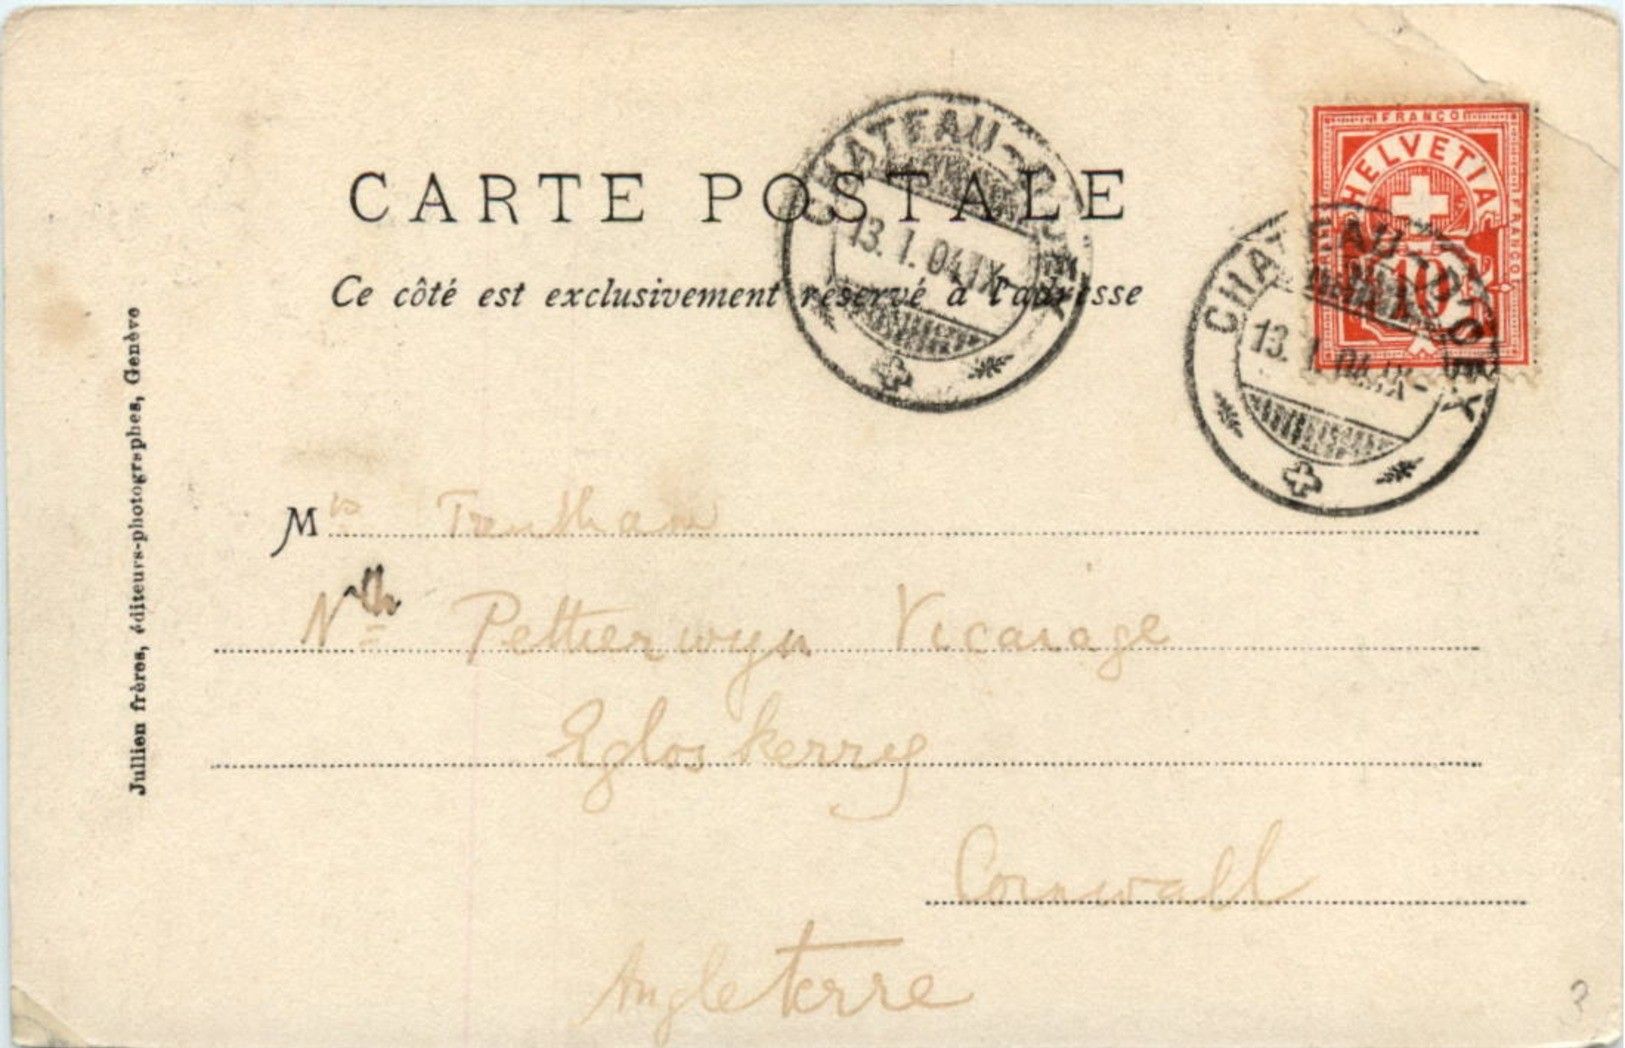 CARTE POSTALE
Ce côté est exclusivement réservé à l'adresse
CHATEAU-D'OEX
13. I. 04. IX-
FRANCO
HELVETIA
FRANCO
FRANCO
10
CHATEAU-D'OEX
13. I. 04. IX-
Jullien frères, éditeurs-photographes, Genève
Mrs Trentham
Nth Petherwyn Vicarage
Egloskerry
Cornwall
Angleterre
?